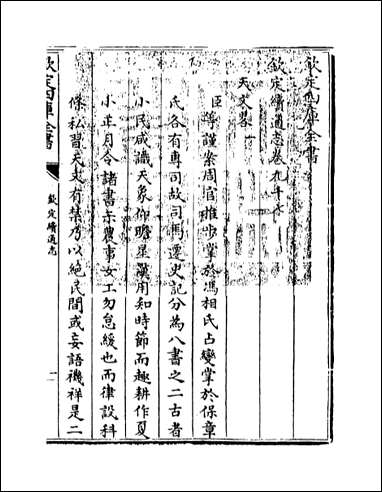 欽定四庫全書
欽定續通志卷九十
天文略
臣等謹案周官推步掌於馮相氏占變掌於保章
氏各有專司故司馬遷史記分為八書之二古者
小民咸識天象仰瞻星漢用知時節而趣耕作夏
小正月令諸書示農事女工勿怠緩也而律設科
條私習天文有禁乃以絶民間或妄語禨祥是二
欽定四庫全書
欽定續通志